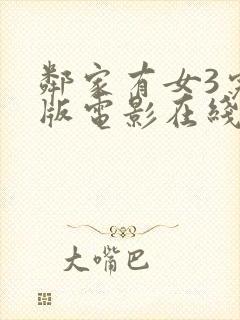 鄰家有女3完
版電影在綫
大嘴巴